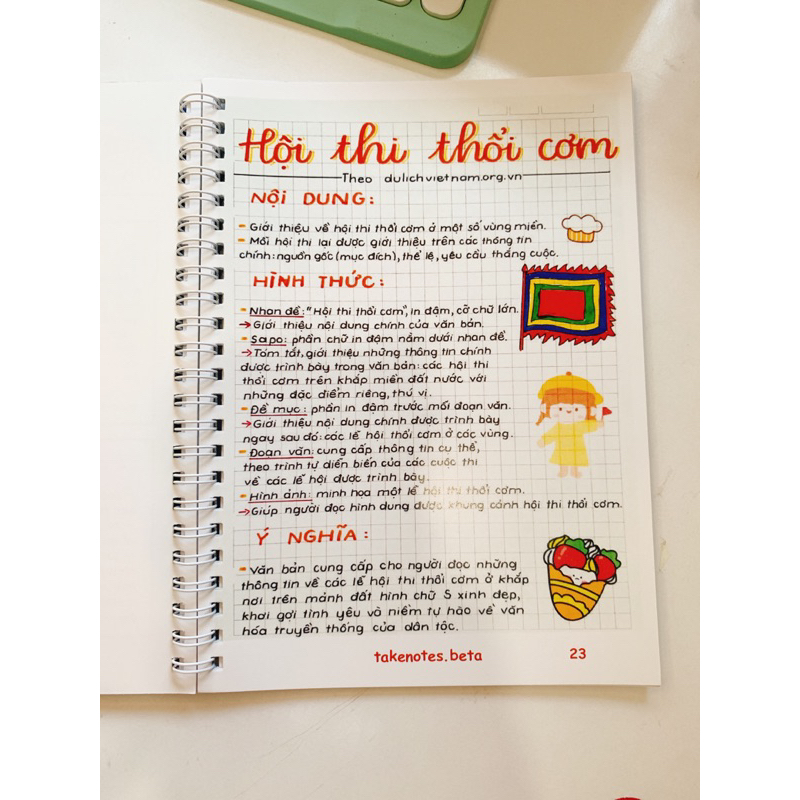 Hội thi thổi cơm
Theo dulichvietnam.org.vn
NỘI DUNG:
- Giới thiệu về hội thi thổi cơm ở một số vùng miền.
- Mỗi hội thi lại được giới thiệu trên các thông tin
chính: nguồn gốc (mục đích), thể lệ, yêu cầu thắng cuộc.
HÌNH THỨC:
- Nhan đề: "Hội thi thổi cơm", in đậm, cỡ chữ lớn.
→ Giới thiệu nội dung chính của văn bản.
- Sapo: phần chữ in đậm nằm dưới nhan đề.
→ Tóm tắt, giới thiệu những thông tin chính
được trình bày trong văn bản: các hội thi
thổi cơm trên khắp miền đất nước với
những đặc điểm riêng, thú vị.
- Đề mục: phần in đậm trước mỗi đoạn văn.
→ Giới thiệu nội dung chính được trình bày
ngay sau đó: các lễ hội thổi cơm ở các vùng.
- Đoạn văn: cung cấp thông tin cụ thể,
theo trình tự diễn biến của các cuộc thi
về các lễ hội được trình bày.
- Hình ảnh: minh họa một lễ hội thi thổi cơm.
→ Giúp người đọc hình dung được khung cảnh hội thi thổi cơm.
Ý NGHĨA:
- Văn bản cung cấp cho người đọc những
thông tin về các lễ hội thi thổi cơm ở khắp
nơi trên mảnh đất hình chữ S xinh đẹp,
khơi gợi tình yêu và niềm tự hào về văn
hóa truyền thống của dân tộc.
takenotes.beta 23